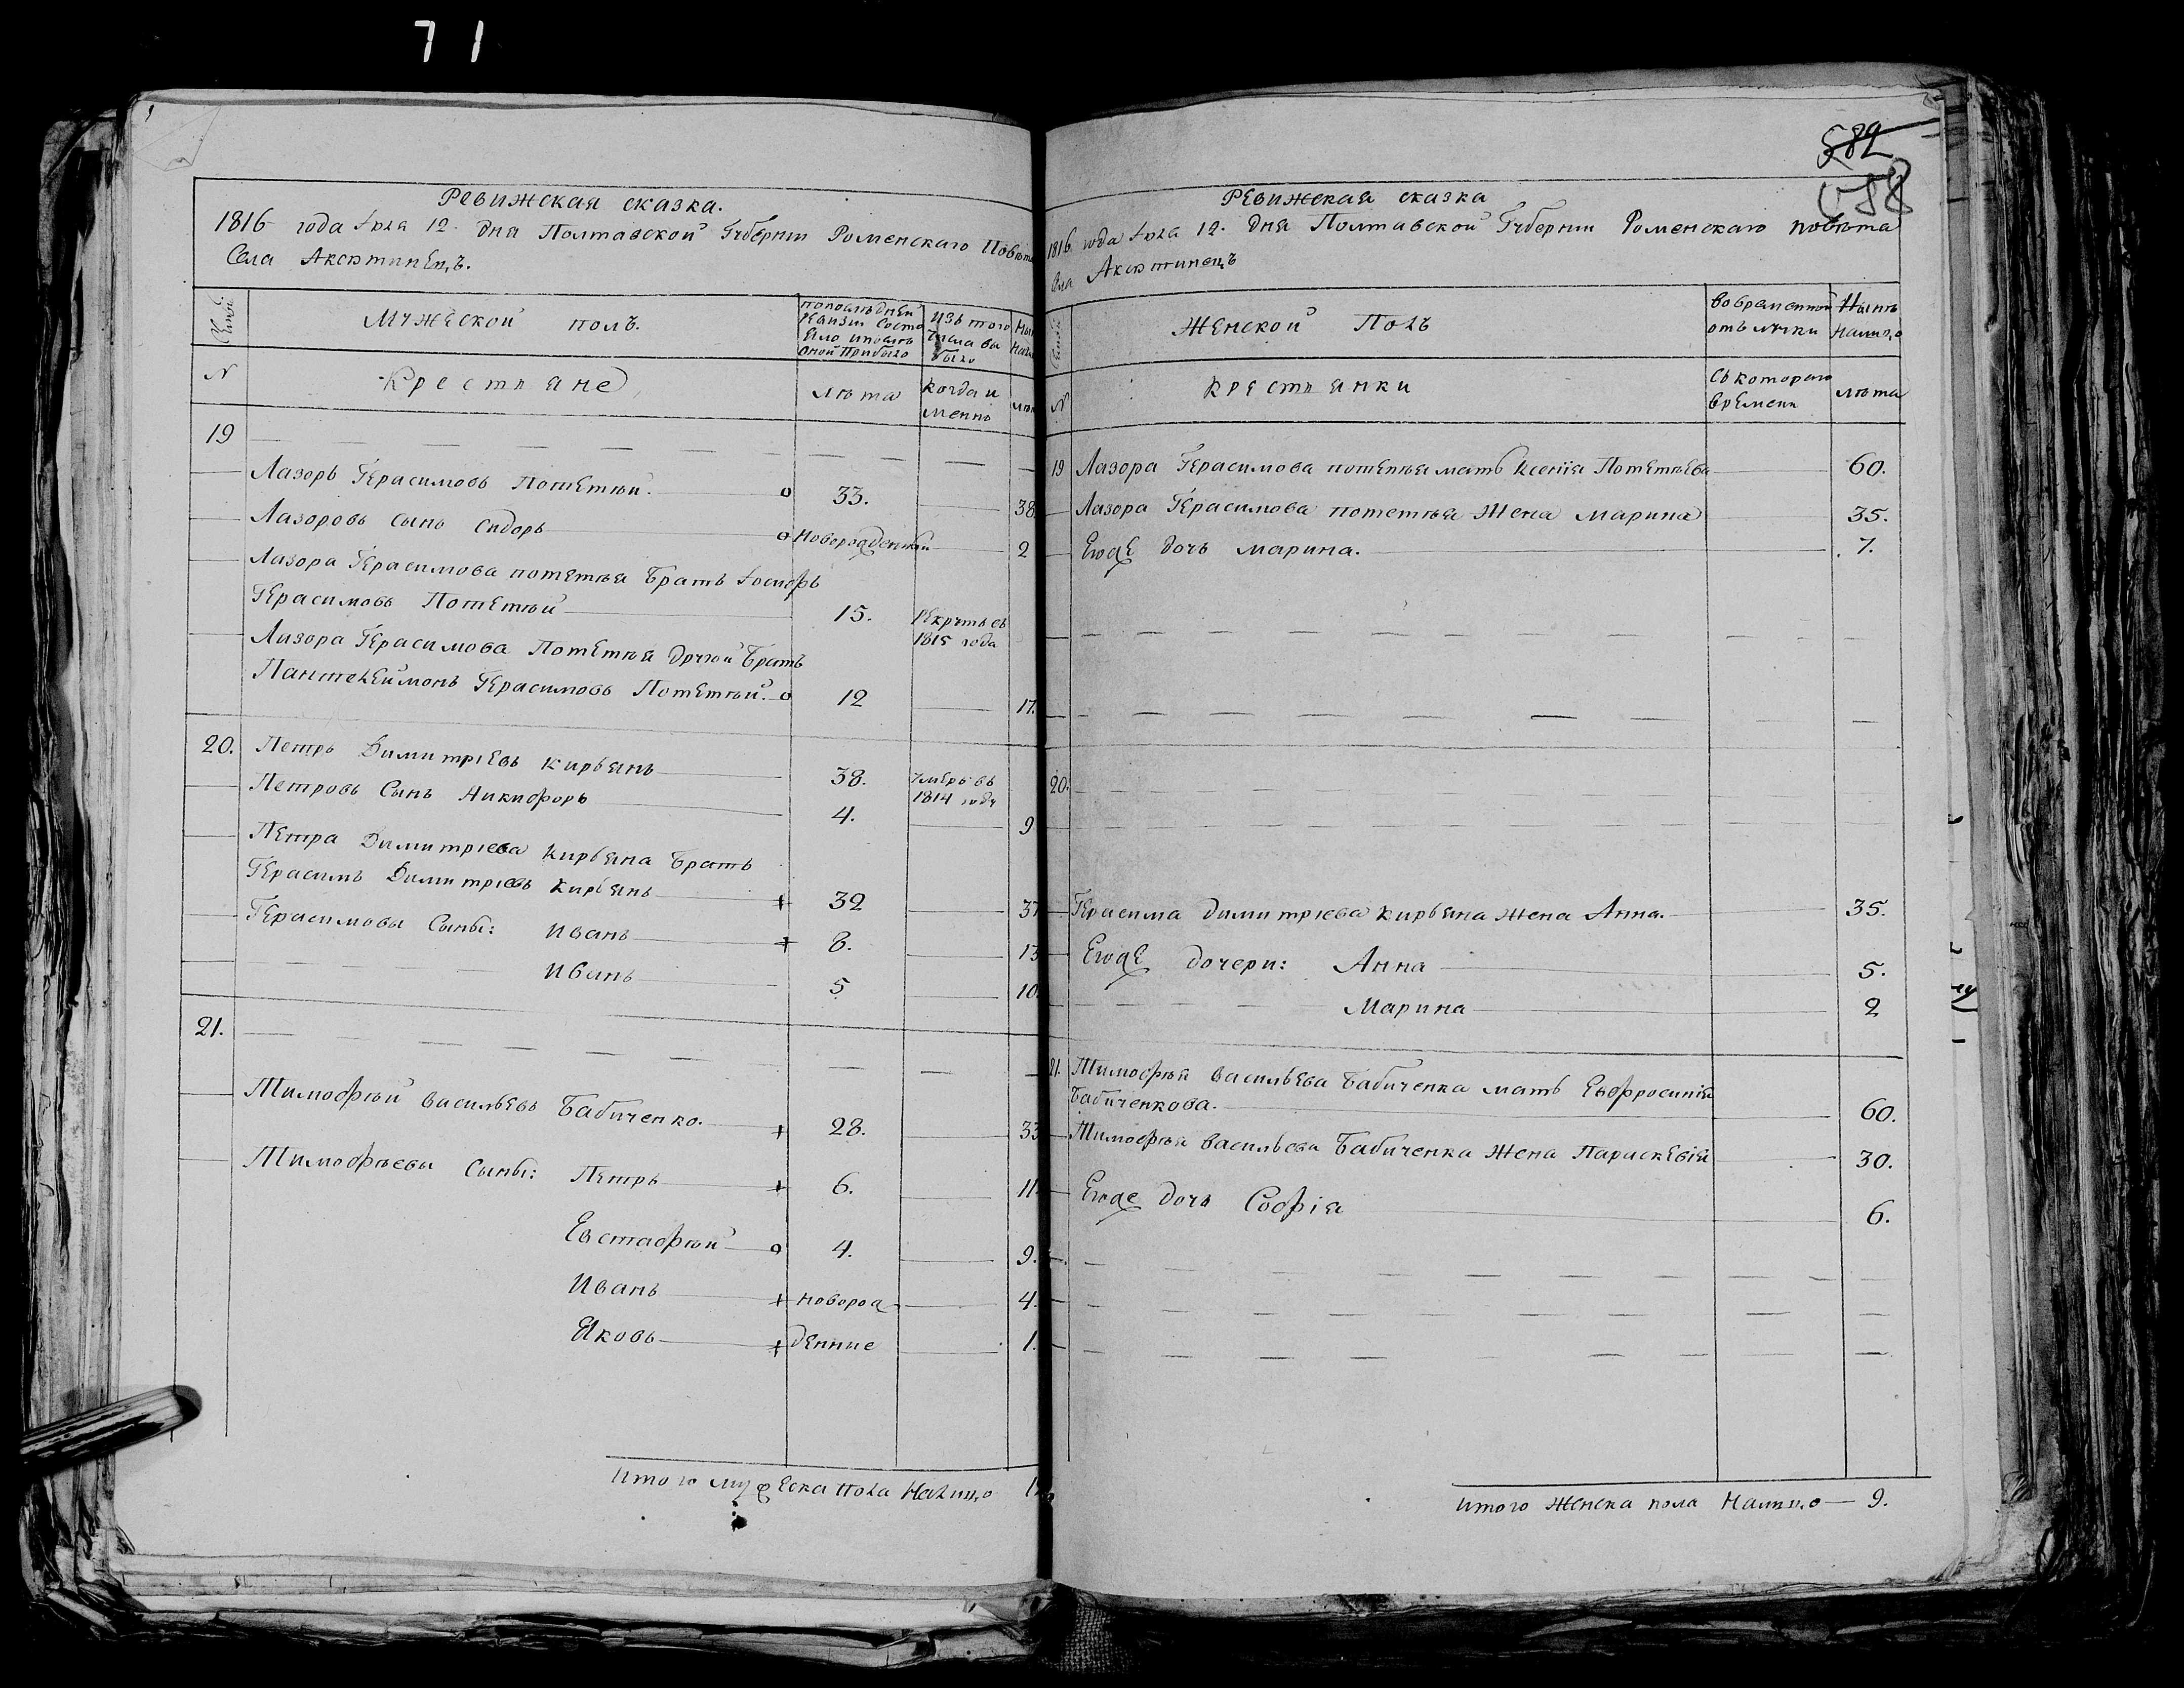 71
Ревижская сказка.
1816 года Іюля 12. дня Полтавской Губернии Роменскаго Повѣта
Села Аксютинецъ.
Мужеской полъ.
По последней ревизии состояло и после оной прибыло
Изъ того числа выбыло
N
Крестяне
лѣта
когда именно
19
Лазоръ Герасимовъ Потетюй. 33. 38.
Лазоровъ сынъ Сидоръ новорожденный 2
Лазора Герасимова Потетюя братъ Іосифъ
Герасимовъ Потетюй 15. рекрутъ съ 1815 года
Лазора Герасимова Потетюя другой братъ
Пантелеймонъ Герасимовъ Потетюй. 12 17.
20. Петръ Димитріевъ Кирьянъ 38. умеръ въ 1814 году
Петровъ сынъ Никифоръ 4. 9
Петра Димитріева Кирьяна братъ
Герасимъ Димитріевъ Кирьянъ 32 37
Герасимовы сыны: Иванъ 8. 13
Иванъ 5 10.
21.
Тимофѣй Васильевъ Бабиченко. 28. 33
Тимофѣевы сыны: Петръ 6. 11.
Евстафѣй 4. 9.
Иванъ новорож 4.
Яковъ денние 1.
Итого мужеска пола налицо
582
Ревижская сказка
1816 года Іюля 12. дня Полтавской Губернии Роменскаго повѣта
Села Аксютинецъ
Женской Полъ
Во временной отлучки
Нынѣ налицо
N
Крестянки
Съ котораго времени
лѣта
19 Лазора Герасимова Потетюя мать Ксенія Потетюева 60.
Лазора Герасимова Потетюя жена Марина 35.
Егоже дочь Марина. 7.
20.
Герасима Димитріева Кирьяна жена Анна. 35.
Егоже дочери: Анна 5.
Марина 2
21. Тимофѣя Васильева Бабиченка мать Евфросинія
Бабиченкова. 60.
Тимофѣя Васильева Бабиченка жена Параскевія 30.
Егоже дочь Софія 6.
Итого женска пола налицо — 9.